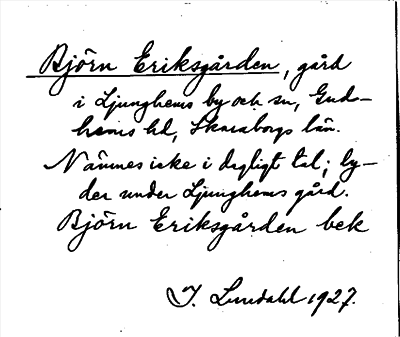 Björn Eriksgården, gård
i Ljunghems by och sn, Gud-
hems hd, Skaraborgs län.
Nämnes icke i dagligt tal; ly-
der under Ljunghems gård.
Björn Eriksgården bek
J. Lundahl 1927.